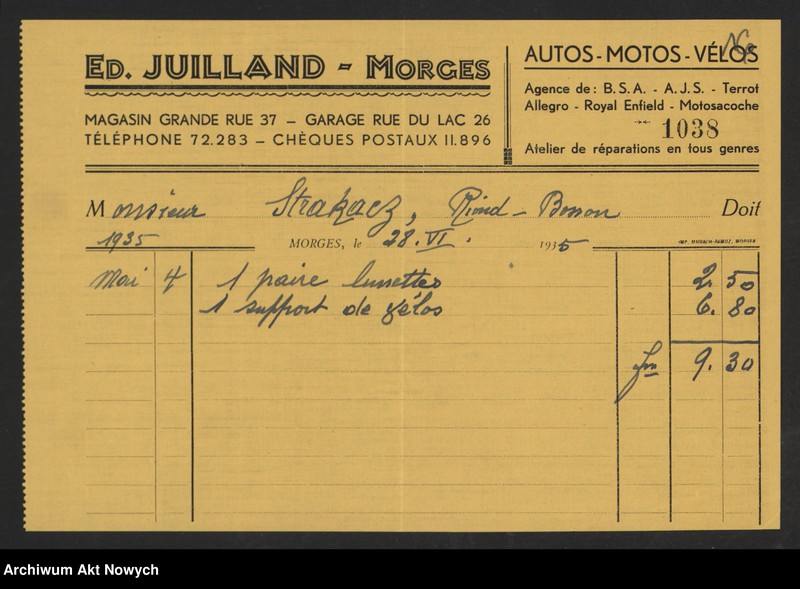 ED. JUILLAND - MORGES
MAGASIN GRANDE RUE 37 — GARAGE RUE DU LAC 26
TÉLÉPHONE 72.283 — CHÈQUES POSTAUX II.896
AUTOS - MOTOS - VÉLOS
Agence de : B.S.A. - A.J.S. - Terrot
Allegro - Royal Enfield - Motosacoche
1038
Atelier de réparations en tous genres
Monsieur Strakacz, Riond-Bosson Doit
1935 MORGES, le 28. VI. 1935
Mai 4 1 paire lunettes 2. 50
1 support de vélos 6. 80
9. 30
Archiwum Akt Nowych